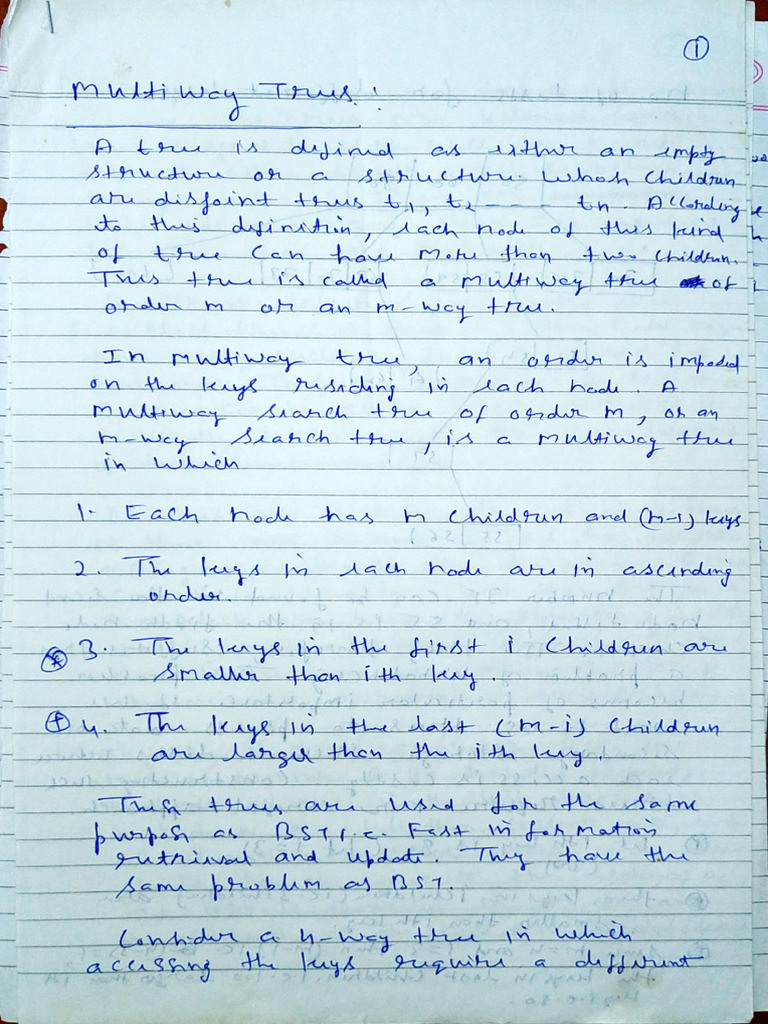 ①
Multiway Trees :
A tree is defined as either an empty
structure or a structure whose children
are disjoint trees t1, t2 ---- tn. According
to this definition, each node of this kind
of tree can have more than two children.
This tree is called a multiway tree of
order m or an m-way tree.
In multiway tree, an order is imposed
on the keys residing in each node. A
multiway search tree of order m, or an
m-way search tree, is a multiway tree
in which
1. Each node has m children and (m-1) keys
2. The keys in each node are in ascending
order.
3. The keys in the first i children are
smaller than ith key.
4. The keys in the last (m-i) children
are larger than the ith key.
These trees are used for the same
purpose as BST i.e. Fast information
retrieval and update. They have the
same problem as BST.
Consider a 4-way tree in which
accessing the keys require a different